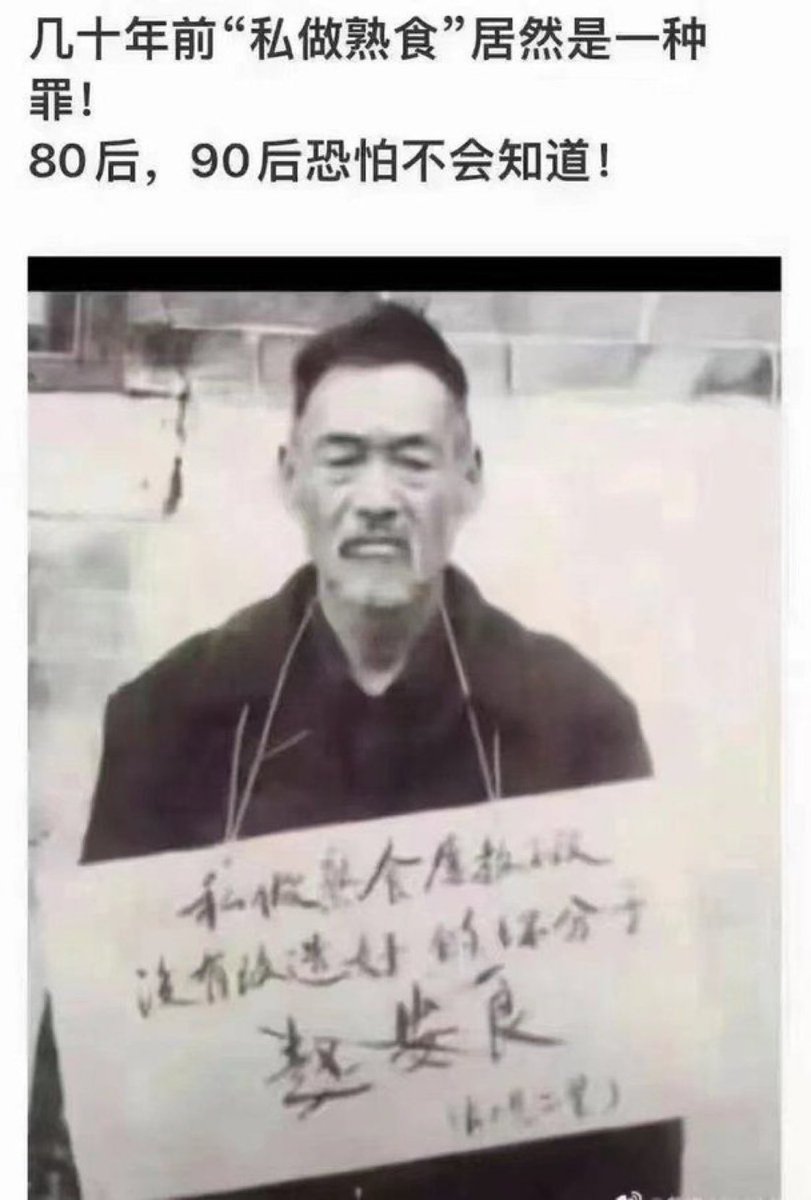 几十年前“私做熟食”居然是一种
罪！
80后，90后恐怕不会知道！
私做熟食屡教不改
没有改造好的坏分子
赵安良